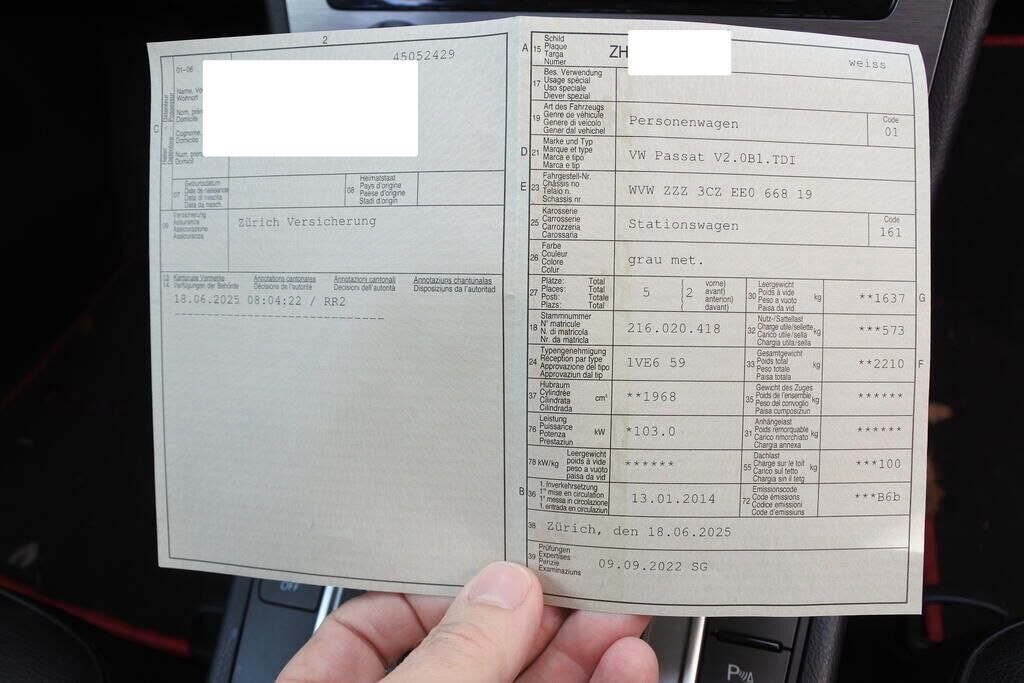 2
45052429
01–06
Wohnort
Domicile
Domicilio
Domicil
C
07
Geburtsdatum
Date de naissance
Data di nascita
Data da nasch.
08
Heimatstaat
Pays d'origine
Paese d'origine
Stadi d'origin
09
Versicherung
Assurance
Assicurazione
Assicuranza
Zürich Versicherung
13
14
Kantonale Vermerke
Verfügungen der Behörde
Annotations cantonales
Décisions de l'autorité
Annotazioni cantonali
Decisioni dell'autorità
Annotaziuns chantunalas
Disposiziuns da l'autoritad
18.06.2025 08:04:22 / RR2
A
15
Schild
Plaque
Targa
Numer
ZH
weiss
17
Bes. Verwendung
Usage spécial
Uso speciale
Diever spezial
19
Art des Fahrzeugs
Genre de véhicule
Genere di veicolo
Gener dal vehichel
Personenwagen
Code
01
D
21
Marke und Typ
Marque et type
Marca e tipo
Marca e tip
VW Passat V2.0B1.TDI
E
23
Fahrgestell-Nr.
Châssis no
Telaio n.
Schassis nr.
WVW ZZZ 3CZ EE0 668 19
25
Karosserie
Carrosserie
Carrozzeria
Carossaria
Stationswagen
Code
161
26
Farbe
Couleur
Colore
Colur
grau met.
27
Plätze: Total
Places: Total
Posti: Totale
Plazs: Total
5
2
vorne)
avant)
anteriori)
davant)
30
Leergewicht
Poids à vide
Peso a vuoto
Paisa da vid
kg
**1637
G
18
Stammnummer
N° matricule
N. di matricola
Nr. da matricla
216.020.418
32
Nutz-/Sattellast
Charge utile/sellette
Carico utile/sella
Chargia utila/sella
kg
***573
24
Typengenehmigung
Réception par type
Approvazione del tipo
Approvaziun dal tip
1VE6 59
33
Gesamtgewicht
Poids total
Peso totale
Paisa totala
kg
**2210
F
37
Hubraum
Cylindrée
Cilindrata
Cilindrada
cm³
**1968
35
Gewicht des Zuges
Poids de l'ensemble
Peso del convoglio
Paisa cumposiziun
kg
******
76
Leistung
Puissance
Potenza
Prestaziun
kW
*103.0
31
Anhängelast
Poids remorquable
Carico rimorchiato
Chargia annexa
kg
******
78 kW/kg
Leergewicht
poids à vide
peso a vuoto
paisa da vid
******
55
Dachlast
Charge sur le toit
Carico sul tetto
Chargia sin il tetg
kg
***100
B
36
1. Inverkehrsetzung
1re mise en circulation
1a messa in circolazione
1. entrada en circulaziun
13.01.2014
72
Emissionscode
Code émissions
Codice emissioni
Code d'emissiuns
***B6b
38
Zürich, den 18.06.2025
39
Prüfungen
Expertises
Perizie
Examinaziuns
09.09.2022 SG
OFF
P